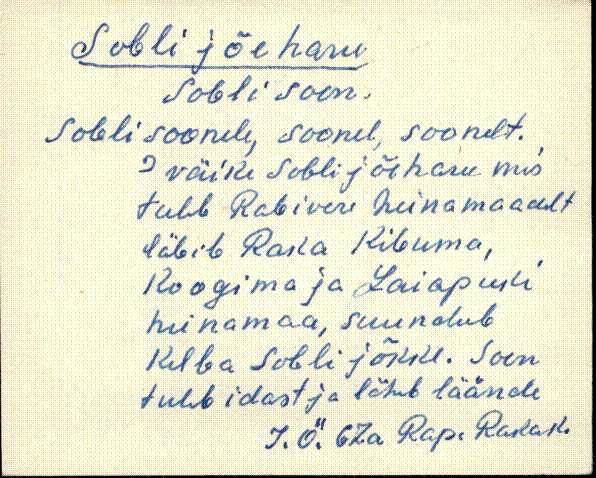 Sobli jõeharu
Sobli soon.
Sobli soonele, soonel, soonelt.
väike Sobli jõeharu mis
tuleb Rabivere heinamaadelt
läbib Raka Kibuma,
Koogima ja Laiapuski
heinamaa, suundub
Kelba Sobli jõkke. Soon
tuleb idast ja läheb läände
J. Ö. 67a Rap. Rakak.